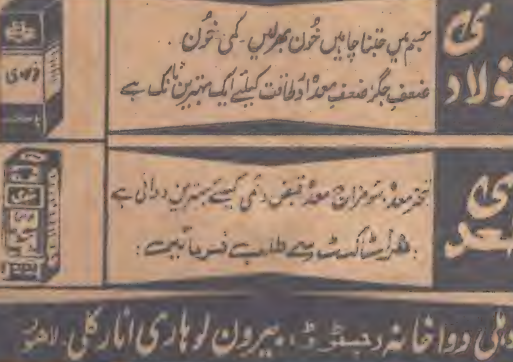 ی
فولاد
جسم میں جتنا چاہیں خُون بھرلیں۔ کمی خُون
ضعف جگر ضعف معدہ اور طاقت کیلئے ایک بہترین ٹانک ہے
ی
معدہ، سوء مزاج معدہ قبض دائمی کیلئے بہترین دوائی ہے
: ہر اسٹاکسٹ سے طلب فرمائیے :
دہلی دواخانہ رجسٹرڈ، بیرون لوہاری انارکلی۔ لاہور